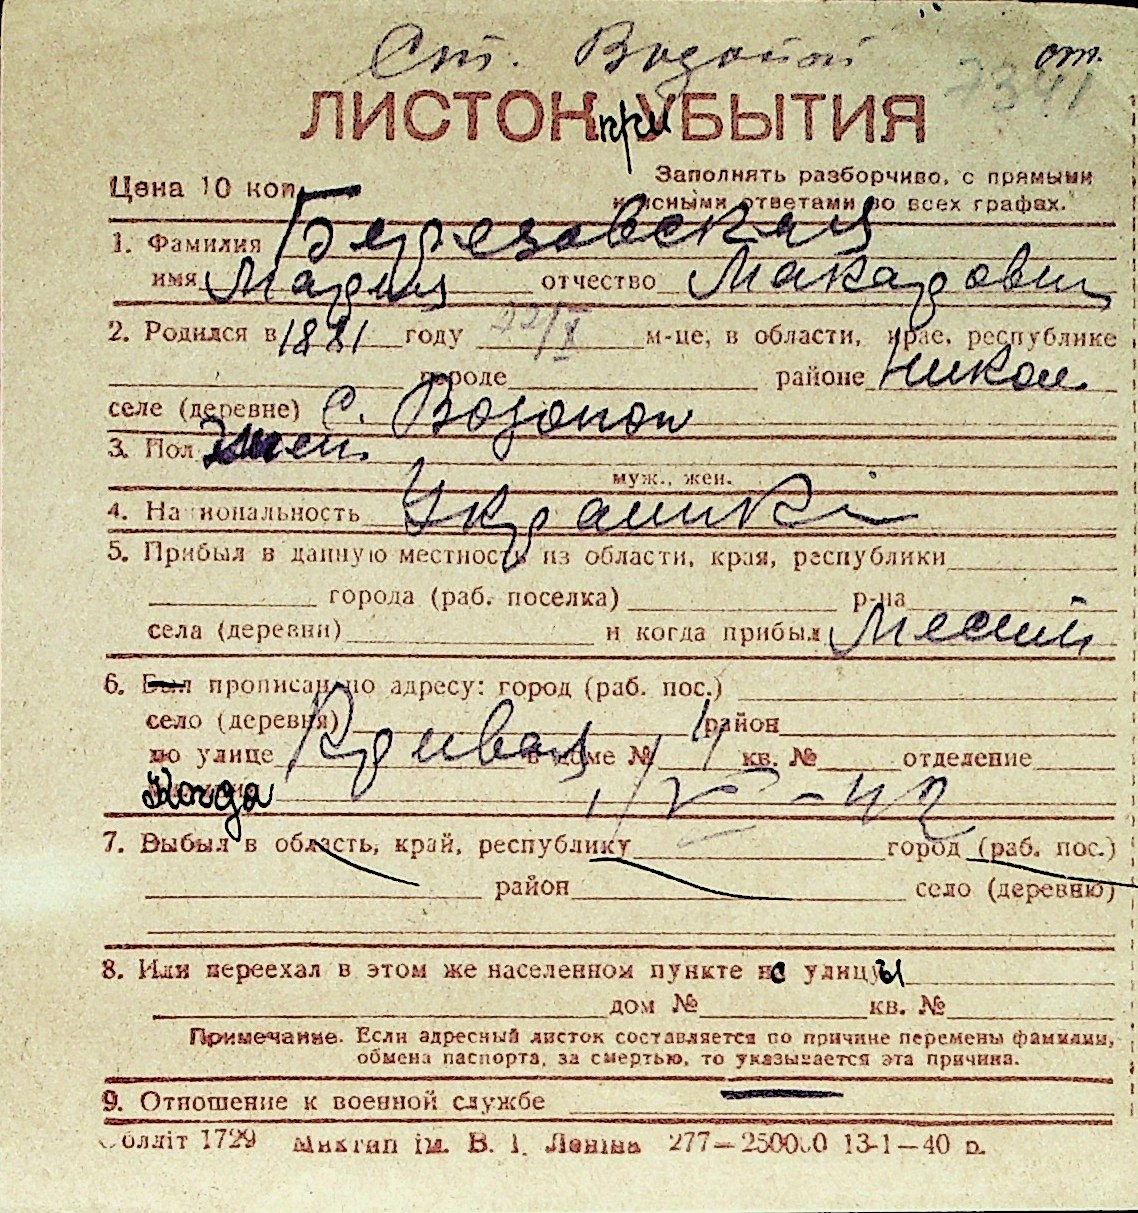 Ст. Водопой от.
7341
ЛИСТОК при УБЫТИЯ
Цена 10 коп. Заполнять разборчиво, с прямыми
и ясными ответами во всех графах.
1. Фамилия Березовская
имя Мария отчество Макаровн
2. Родился в 1881 году 22/X м-це, в области, крае, республике
городе районе Никол
селе (деревне) с. Водопой
3. Пол жен.
муж., жен.
4. Национальность Украинка
5. Прибыл в данную местность из области, края, республики
города (раб. поселка) р-на
села (деревни) и когда прибыл Местн
6. Был прописан по адресу: город (раб. пос.)
село (деревня) район
по улице Кривая в доме № 11 кв. № отделение
Когда 1/VI-42
7. Выбыл в область, край, республику город (раб. пос.)
район село (деревню)
8. Или переехал в этом же населенном пункте с улицы
дом № кв. №
Примечание. Если адресный листок составляется по причине перемены фамилии,
обмена паспорта, за смертью, то указывается эта причина.
9. Отношение к военной службе
Облліт 1729 Миктип ім. В. І. Леніна 277—250000 13-1—40 р.